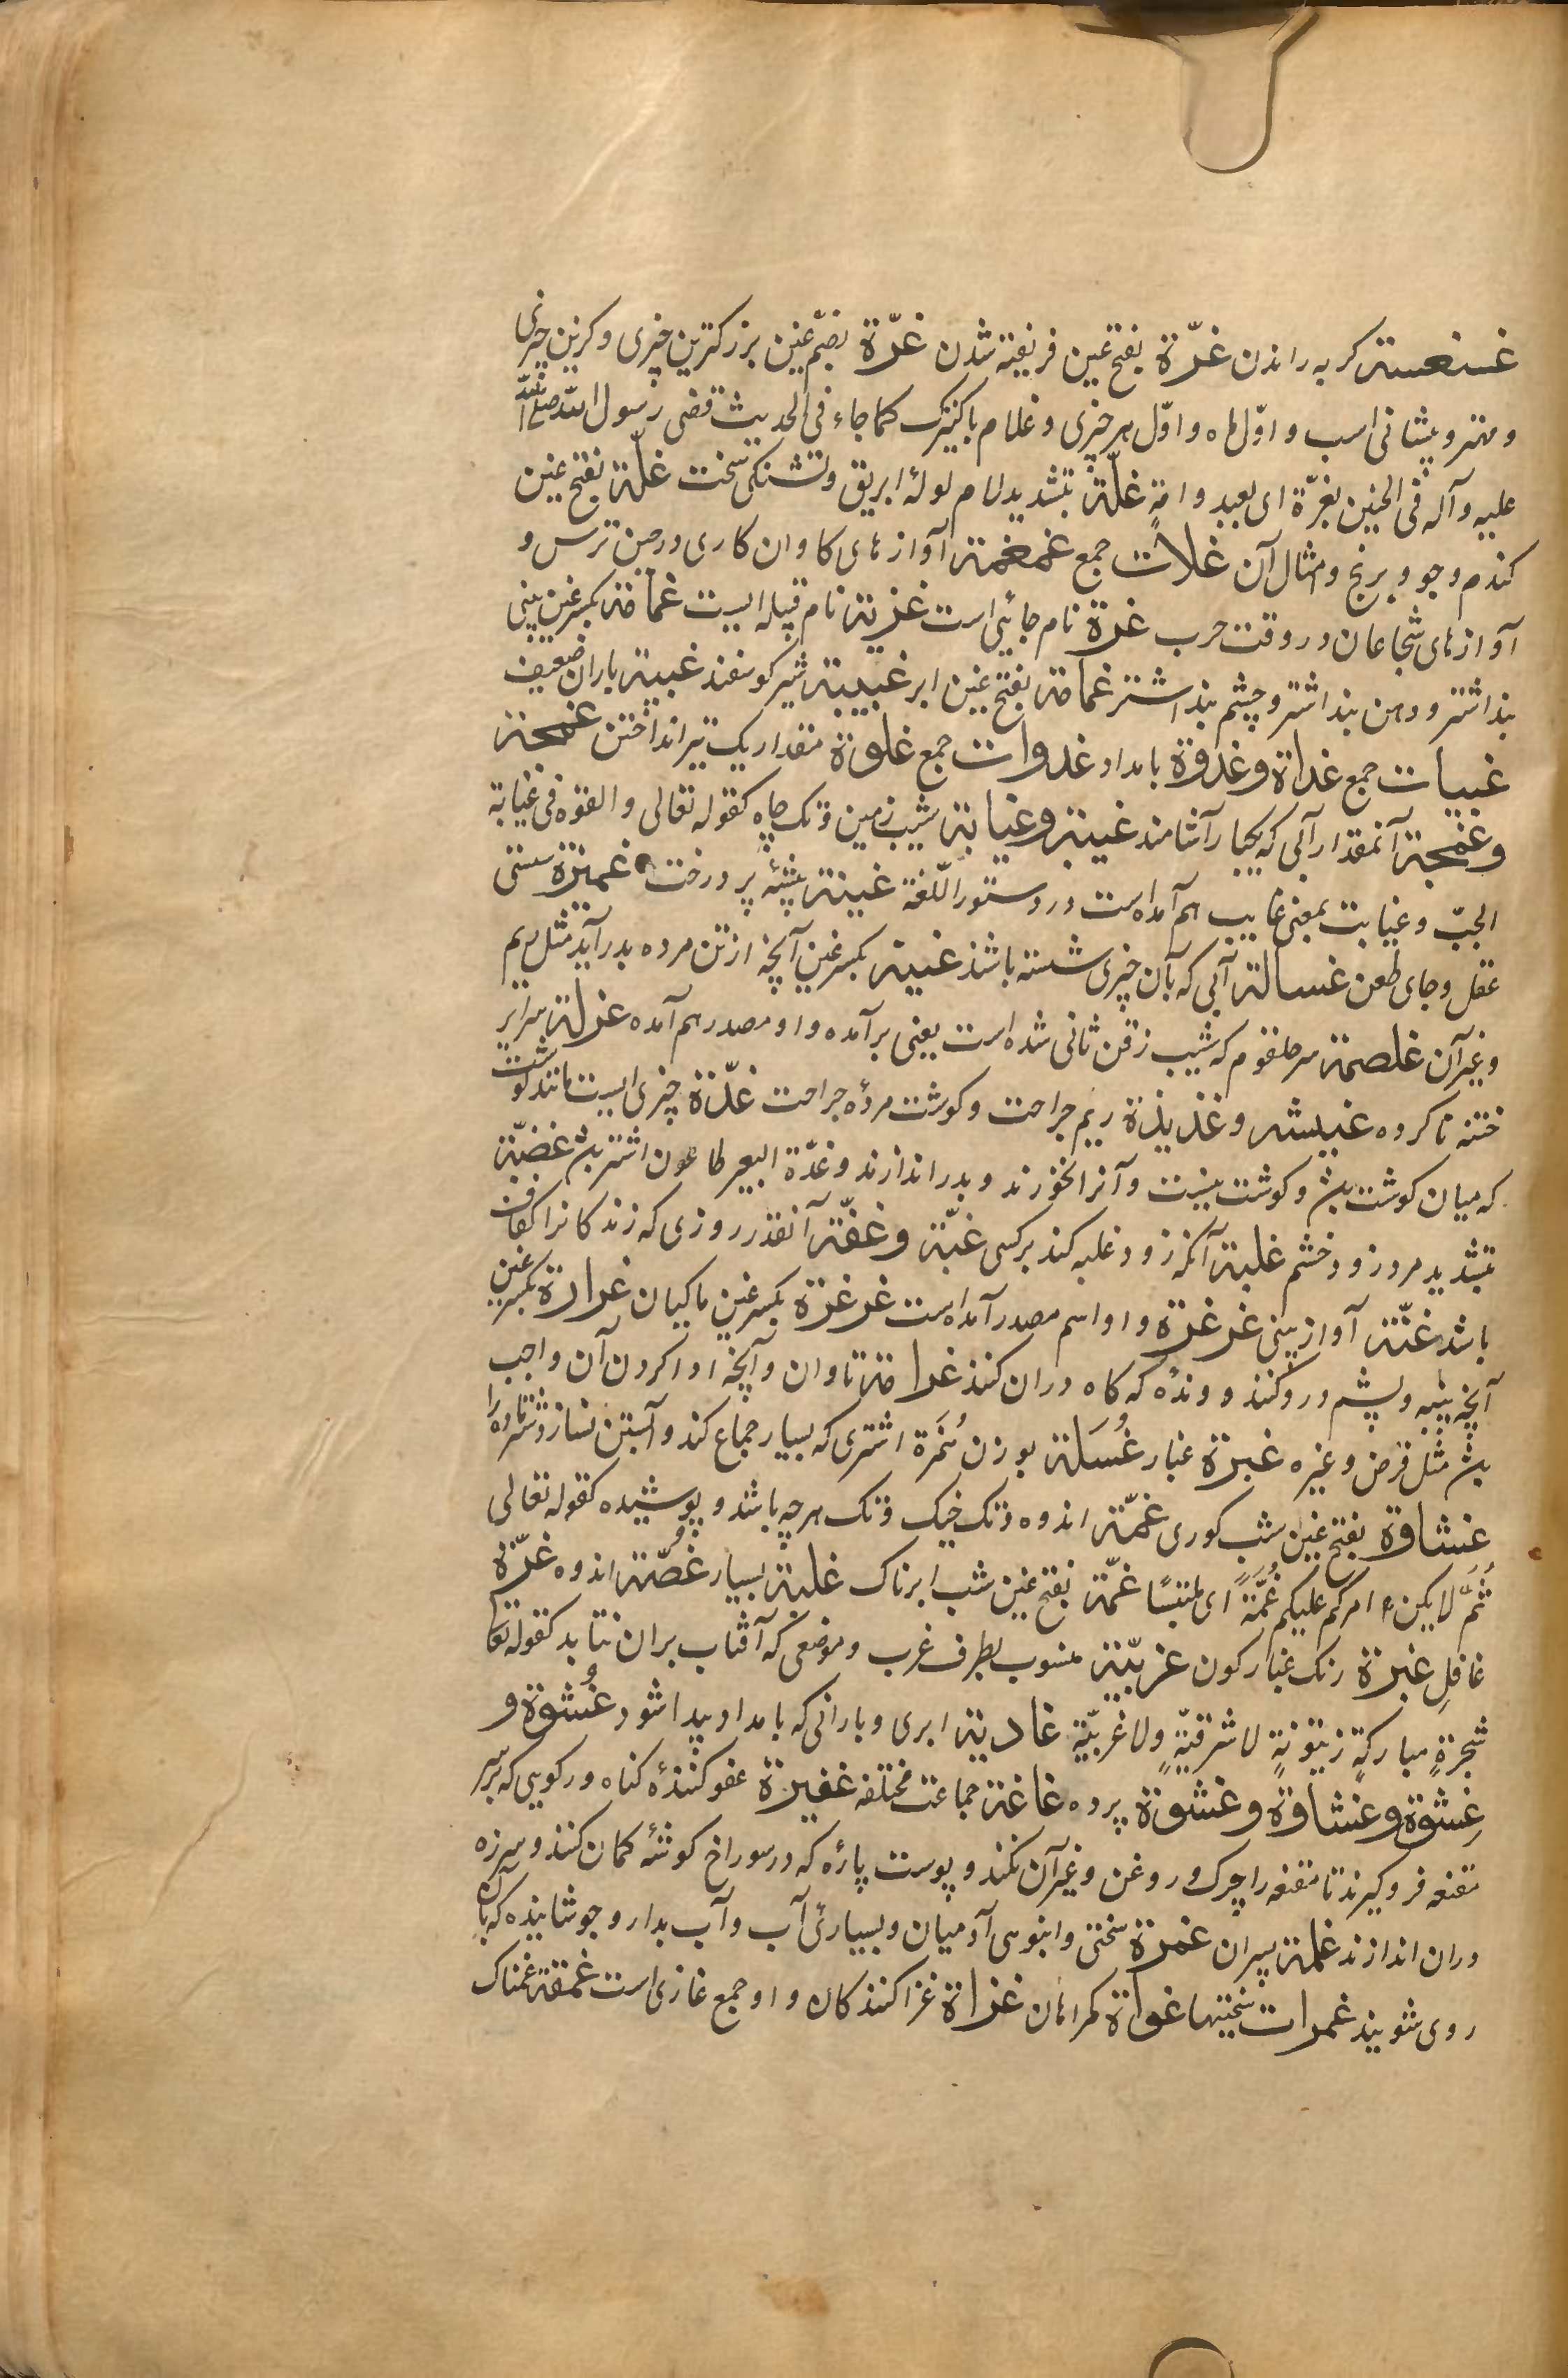 غسغسة کربه راندن غرّة بفتح غین فریفته شدن غرّة بضمّ غین بزرکترین چیزی و کزین چیزی
و مهتر و پیشانی اسب و اوّل ماه و اوّل هر چیزی و غلام با کنیزک کما جاء فی الحدیث قضی رسول اللّه صلی اللّه
علیه وآله فی الجنین بغرّة ای بعبد و امةٍ غلّة بتشدید لام لولۀ ابریق و تشنکی سخت غلّة بفتح غین
کندم و جو و برنج و امثال آن غلات جمع غمغمة آوازهای کاوان کاری در حین ترس و
آوازهای شجاعان در وقت حرب غزة نام جائی است غزیة نام قبیله ایست غمامة بکسر غین بینی
بند اشتر و دهن بند اشتر و چشم بند اشتر غمامة بفتح غین ابر غبیبة شیر کوسفند غبیة باران ضعیف
غبیات جمع غداة و غدوة بامداد غدوات جمع غلوة مقدار یک تیر انداختن غمجة
و غمجة آنمقدار آبی که بیکبار آشامند غیبة و غیابة شیب زمین و تک چاه کقوله تعالی والقوه فی غیابة
الجبّ و غیابت بمعنی غایب هم آمده است در دستور اللّغة غینة بیشۀ پر درخت غمیزة سستی
عقل و جای طعن غسالة آبی که بآن چیزی شسته باشند غینة بکسر غین آنچه از تن مرده بدر آید مثل ریم
و غیر آن غلصمة سر حلقوم که شیب زقن ثانی شده است یعنی بر آمده و او مصدر هم آمده غرلة سر ایر
ختنه ناکرده غبیشه و غذیذة ریم جراحت و کوشت مردۀ جراحت غدّة چیزی ایست مانند کوشت
که میان کوشت بدن و کوشت نیست و آنرا نخورند و بدر اندازند و غدّة البعیر طاعون اشتر بدن غضبّة
بتشدید مرد زود خشم غلبة آنکه زود غلبه کند بر کسی غبّة و غفّة آنقدر روزی که زندکانرا کفاف
باشد غنّة آواز بینی غرغرة و او اسم مصدر آمده است غرغرة بکسر غین ماکیان غرارة بکسر غین
آنچه پنبه و پشم درو کنند و وندۀ که کاه دران کنند غرامة تاوان و آنچه ادا کردن آن واجب
بدن مثل قرض و غیره غبرة غبار غُسَلة بوزن هُمَزة اشتری که بسیار جماع کند و آبستن نسازد شتر ماده را
غشاوة بفتح غین شب کوری غمّة اندوه و تک خیک و تک هر چه باشد و پوشیده کقوله تعالی
ثُمَّ لا یکن امرکم علیکم غُمَّةً ای ملتبسًا غمّة بفتح غین شب ابرناک غلبة بسیار غصّة اندوه غرّة
غافل غبرة رنک غبار کون غربیّة منسوب بطرف غرب و موضعی که آفتاب بران نتابد کقوله تعا
شجرةٍ مبارکةٍ زیتونةٍ لا شرقیّةٍ ولا غربیّة غادیة ابری و بارانی که بامداد پیدا شود غُشوة و
غِشوة و غشاوة و غشوة پرده غاغة جماعت مختلفه غفیرة عفو کنندۀ کناه و رکویی که بر سر
مقنعه فرو کیرند تا مقنعه را چرک و روغن و غیر آن نکند و پوست پارۀ که در سوراخ کوشۀ کمان کنند و سر زه
دران اندازند غلمة پسران غمرة سختی و انبوهی آدمیان و بسیارئ آب و آب بدار و جوشانیده که بآن
روی شویند غمرات سختیها غواة کمراهان غزاة غزا کنندکان و او جمع غازی است غمقة غمناک